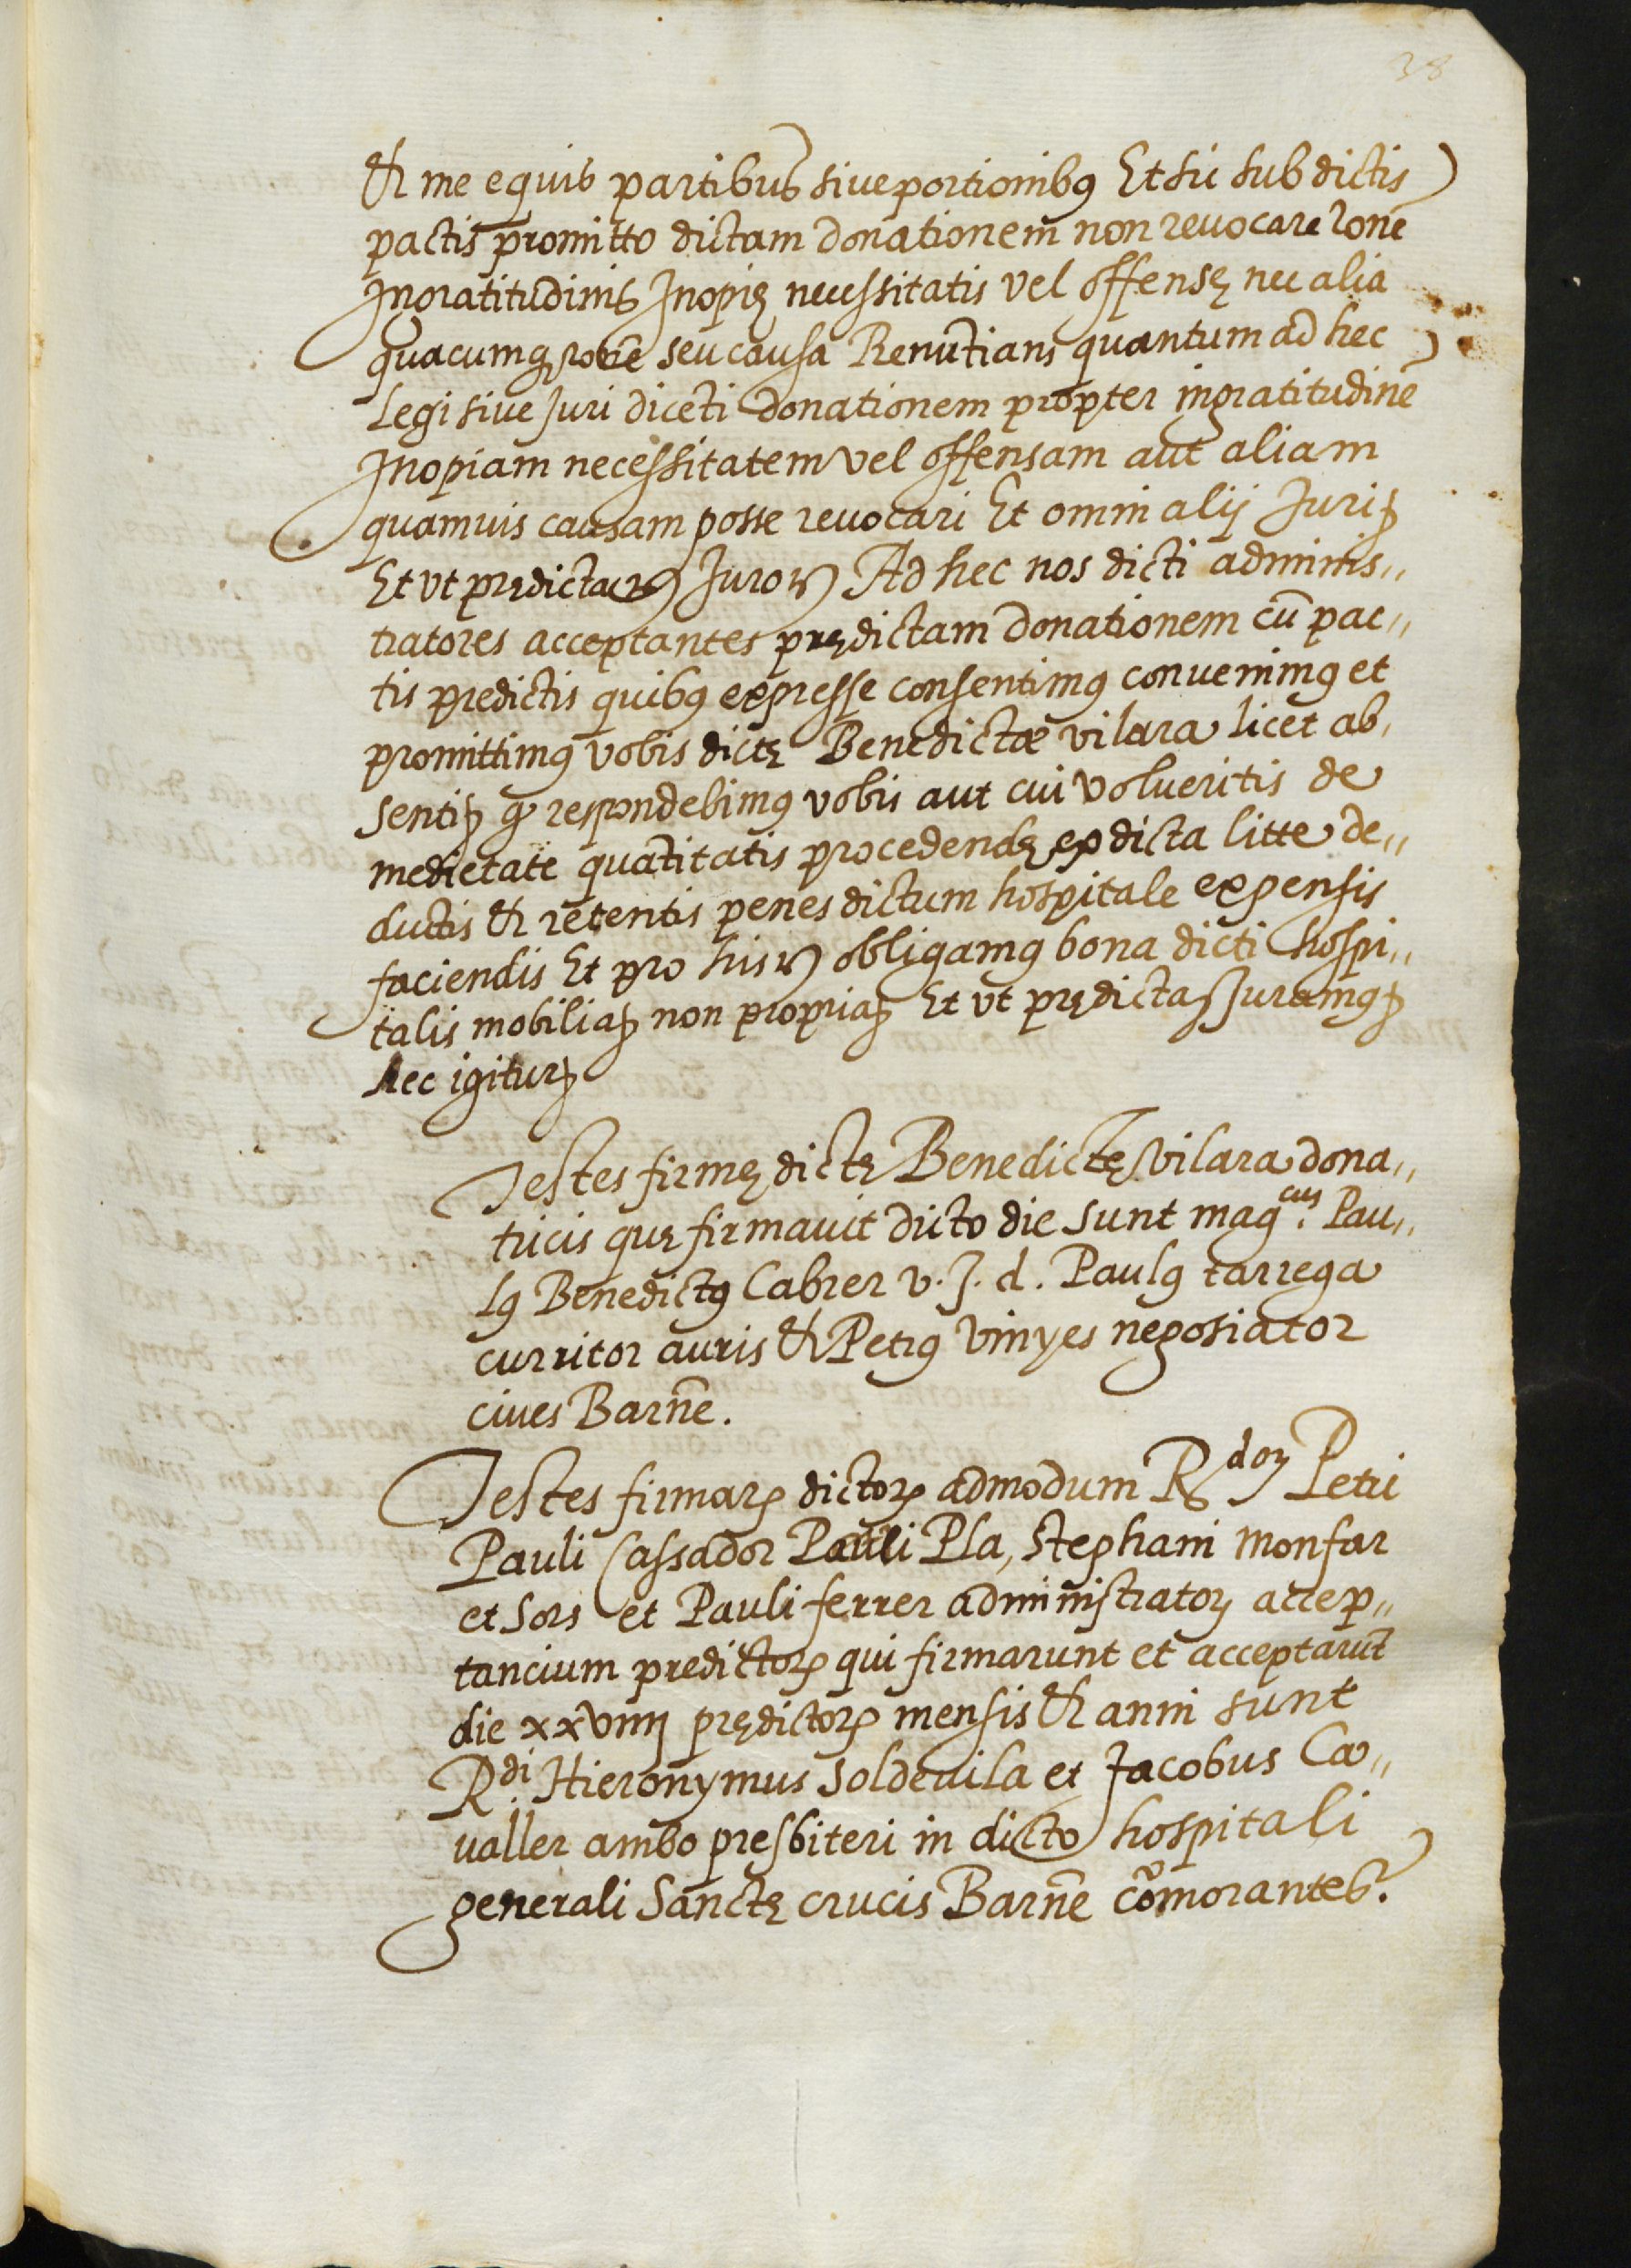 38
Et me equis partibus sive portionibus Et sic sub dictis
pactis promitto dictam donationem non revocare rõne
Ingratitudinis Inopię necessitatis vel offensę nec alia
quacumq; rõne seu causa Renūtians quantum ad hec
Legi sive Juri dicēti donationem propter ingratitudinē
Inopiam necessitatem vel offensam aut aliam
quamvis causam posse revocari Et omni alij Juri
Et ut prędicta Juro Ad hec nos dicti adminis,,
tratores acceptantes prędictam donationem cū pac,,
tis predictis quibus expresse consentimus convenimus et
promittimus vobis dictę Benedictæ vilara licet ab,
senti q respondebimus vobis aut cui volueritis de
medietate quātitatis procedendę ex dicta litte de,,
ductis Et retentis penes dictum hospitale expensis
faciendis Et pro his obligamus bona dicti hospi,,
talis mobilia non propria Et ut prędicta Juramus
hec igitur
Testes firmę dictę Benedictę vilara dona,,
tricis quę firmavit dicto die sunt mag.cus Pau,,
lus Benedictus Cabrer v. J. d. Paulus tarrega
curritor auris Et Petrus vinyes negosiator
cives Barnē.
Testes firmar dictor admodum Rdor Petri
Pauli Cassador Pauli Pla, Stephani monfar
et Sors et Pauli ferrer administrator accep,,
tancium predictor qui firmarunt et acceptarūt
die xxviiij prędictor mensis Et anni sunt
R.di Hieronymus Soldevila et Jacobus Ca,,
valler ambo presbiteri in dicto hospitali
generali Sanctę crucis Barnē cōmorantes.